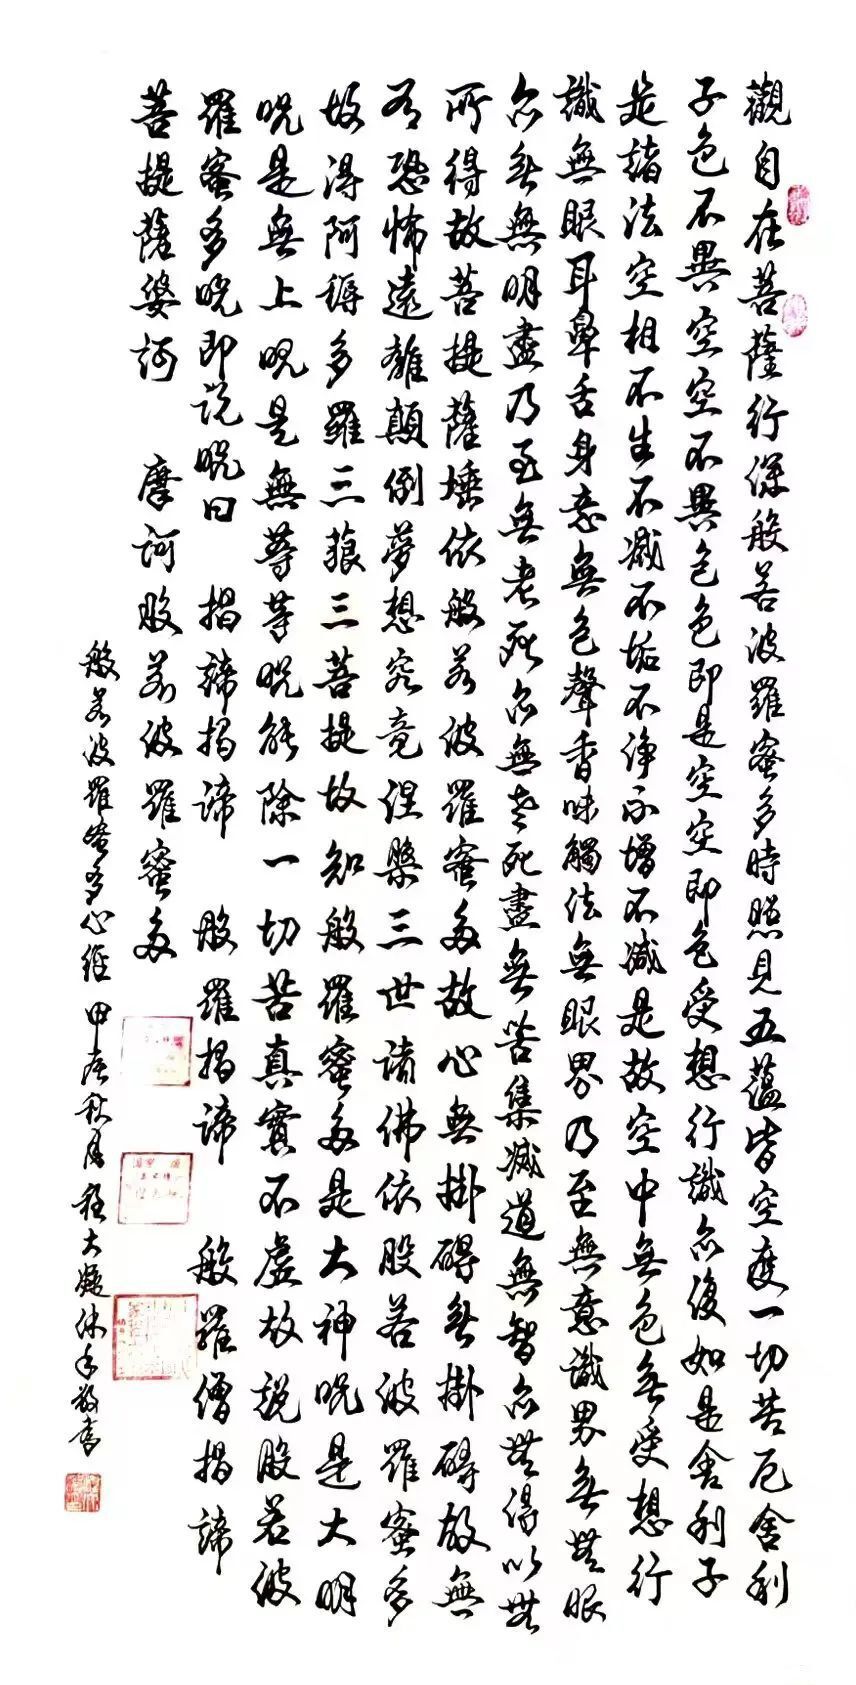 觀自在菩薩行深般若波羅蜜多時照見五蘊皆空度一切苦厄舍利
子色不異空空不異色色即是空空即色受想行識亦復如是舍利子
是諸法空相不生不滅不垢不淨不增不減是故空中無色無受想行
識無眼耳鼻舌身意無色聲香味觸法無眼界乃至無意識界無無眼
亦無無明盡乃至無老死亦無老死盡無苦集滅道無智亦無得以無
所得故菩提薩埵依般若波羅蜜多故心無掛礙無掛礙故無
有恐怖遠離顛倒夢想究竟涅槃三世諸佛依般若波羅蜜多
故得阿耨多羅三藐三菩提故知般羅蜜多是大神咒是大明
咒是無上咒是無等等咒能除一切苦真實不虛故說般若波
羅蜜多咒即說咒曰 揭諦揭諦 般羅揭諦 般羅僧揭諦
菩提薩婆訶 摩訶般若波羅蜜多
般若波羅蜜多心經 甲辰秋月程大沐手敬書